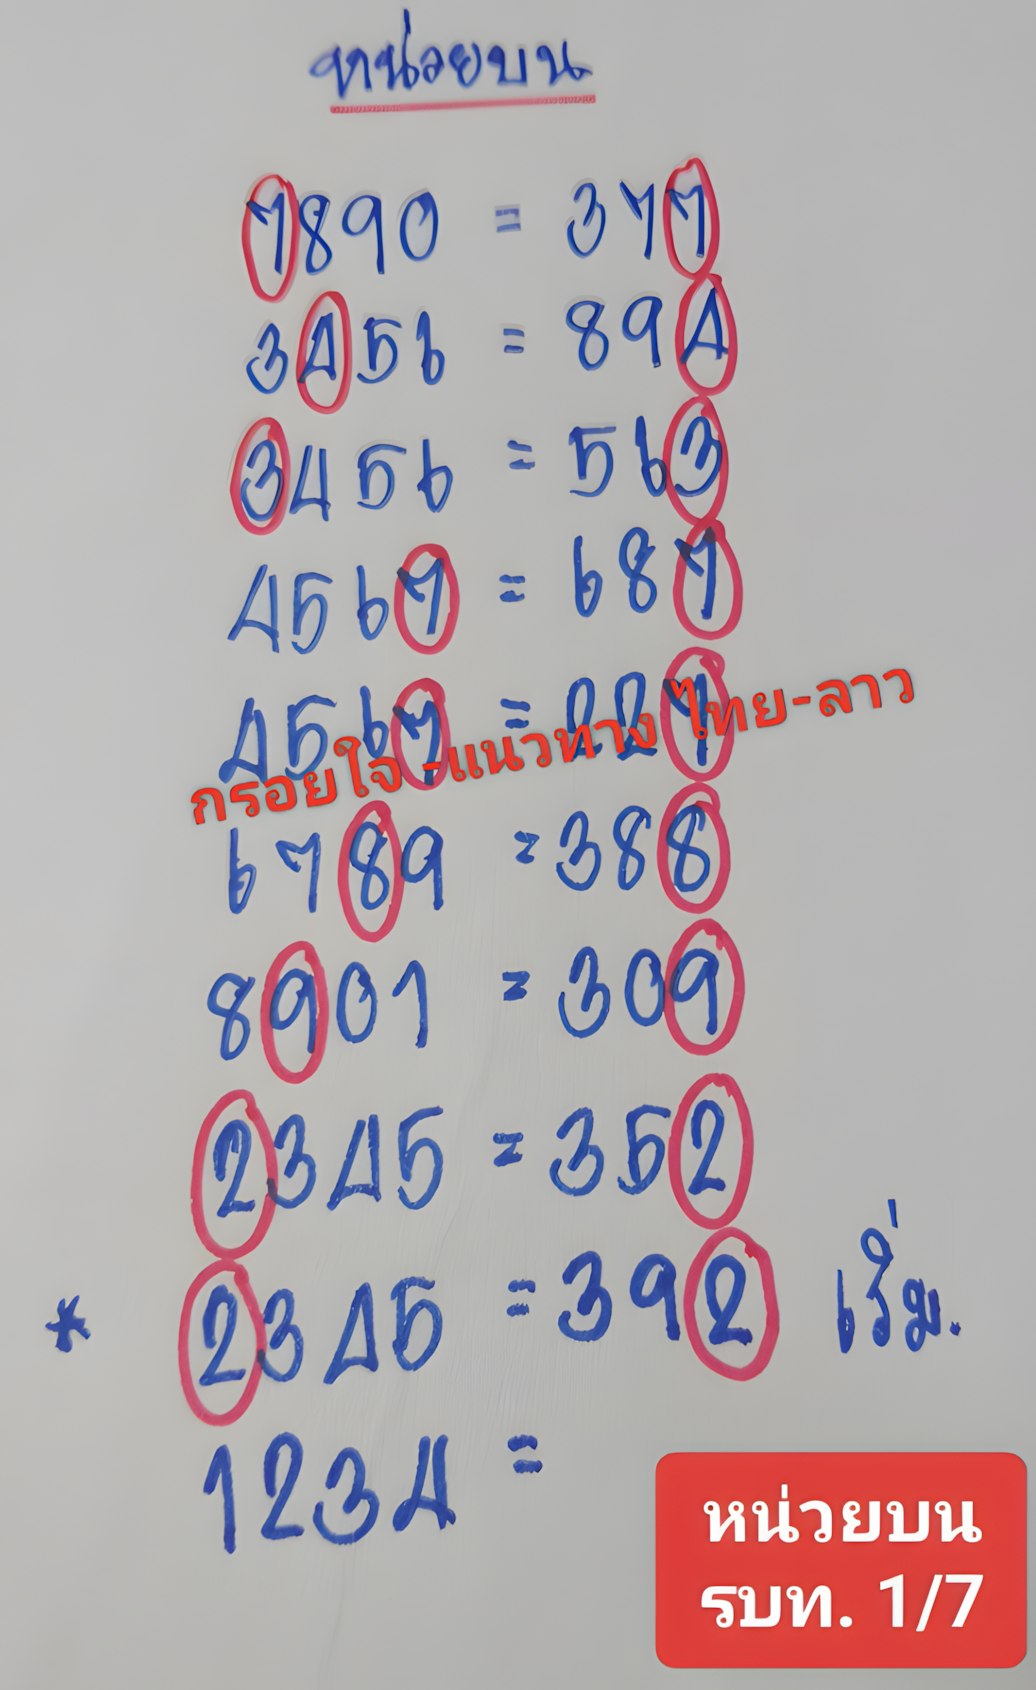 หน่วยบน
7890 = 377
3456 = 894
3456 = 563
4567 = 687
4567 = 227
กรอยใจ -แนวทาง ไทย-ลาว
6789 = 388
8901 = 309
2345 = 352
* 2345 = 392 เริ่ม.
1234 =
หน่วยบน
รบท. 1/7